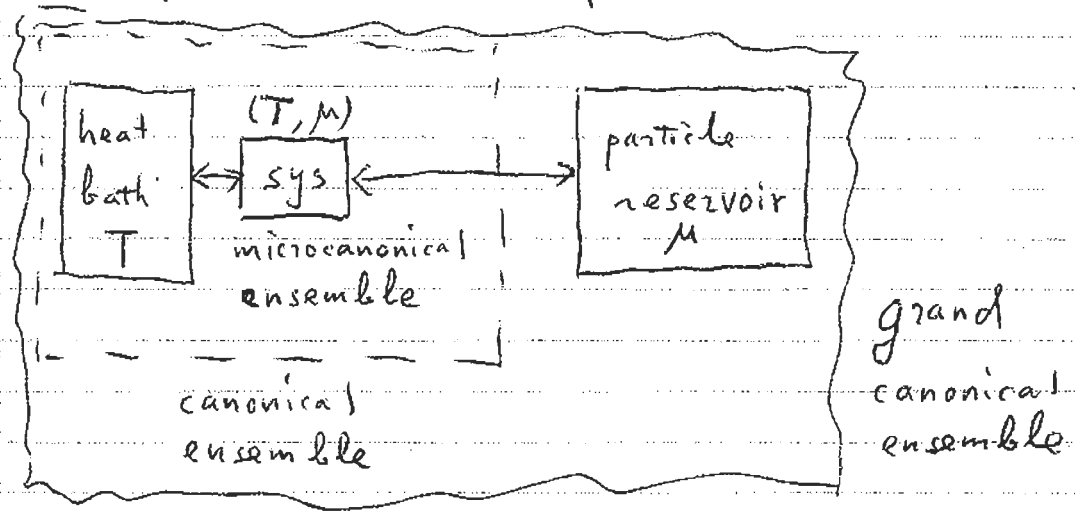 heat
bath
T
(T, μ)
sys
microcanonical
ensemble
particle
reservoir
μ
canonical
ensemble
grand
canonical
ensemble